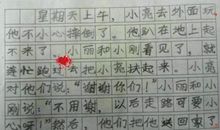 星期天上午，小亮去外面玩，
他不小心摔倒了。他趴在地上起
不来了。小丽和小刚看见了，就
连忙跑过去把小亮扶起来。小亮
对他们说：“谢谢你们！”小丽和小
刚说：“不用谢，以后走路可要小
心呀！”然后，他们把他送回家了